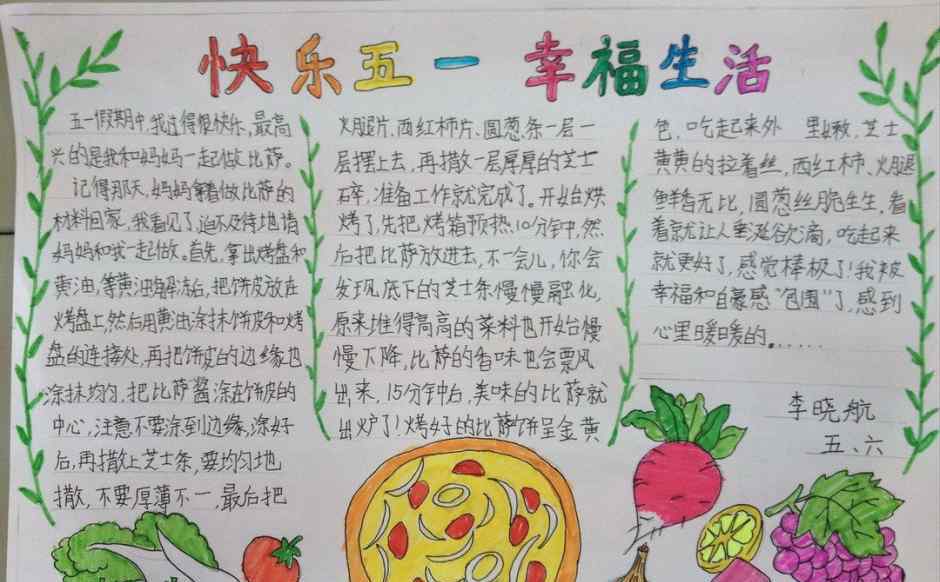 快乐五一 幸福生活
五一假期中,我过得很快乐,最高
兴的是我和妈妈一起做比萨。
记得那天,妈妈拿着做比萨的
材料回家,我看见了迫不及待地请
妈妈和我一起做。首先,拿出烤盘和
黄油,等黄油解冻后,把饼皮放在
烤盘上,然后用黄油涂抹饼皮和烤
盘的连接处,再把饼皮的边缘也
涂抹均匀,把比萨酱涂在饼皮的
中心,注意不要涂到边缘,涂好
后,再撒上芝士条,要均匀地
撒,不要厚薄不一,最后把
火腿片、西红柿片、圆葱条一层一
层摆上去,再撒一层厚厚的芝士
碎,准备工作就完成了。开始烘
烤了,先把烤箱预热10分钟,然
后把比萨放进去,不一会儿,你会
发现底下的芝士条慢慢融化,
原来堆得高高的菜料也开始慢
慢下降,比萨的香味也会票风
出来,15分钟后,美味的比萨就
出炉了!烤好的比萨饼呈金黄
色,吃起来外 里嫩,芝士
黄黄的拉着丝,西红柿、火腿
鲜香无比,圆葱丝脆生生,看
着就让人垂涎欲滴,吃起来
就更好了,感觉棒极了!我被
幸福和自豪感“包围”了,感到
心里暖暖的。.....
李晓航
五、六